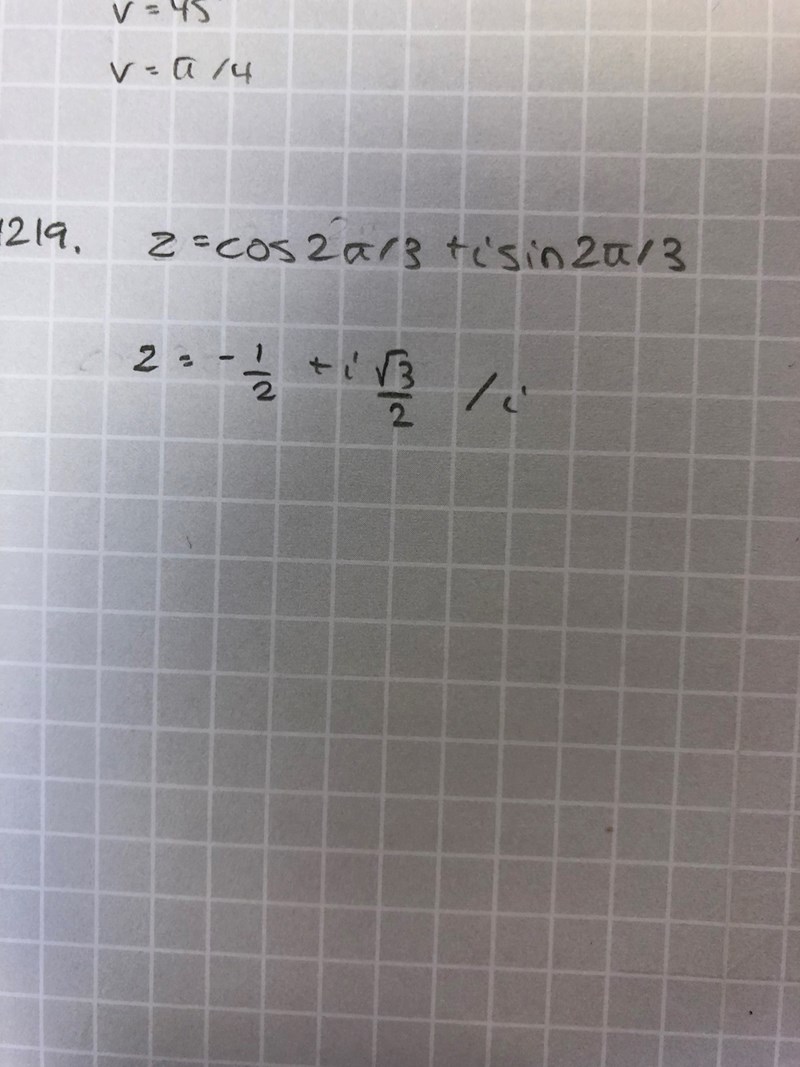 v = 45
v = π/4
1219. z = cos 2π/3 + i sin 2π/3
z = -1/2 + i √3/2 /i